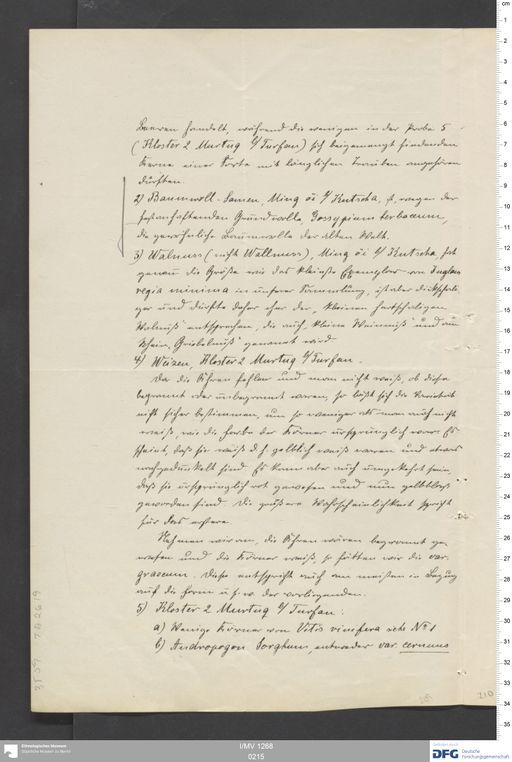 Beeren handelt, während die wenigen in der Probe 5
(Kloster 2 Murtuq b/Turfan) sich beigemengt findenden
Kerne einer Sorte mit länglichen Trauben angehören
dürften.
2) Baumwoll-Samen, Ming öi b/Kutscha, ist, wegen der
festanhaftenden Grundwolle, Gossypium herbaceum,
die gewöhnliche Baumwolle der alten Welt.
3) Walnuss (nicht Wallnuss), Ming öi b/Kutscha, hat
genau die Größe wie das kleinste Exemplar von Juglans
regia minima in unserer Sammlung, ist aber dickschali
ger und dürfte daher eher der „kleinen hartschaligen
Walnuß" entsprechen, die auch „kleine Steinnuß" und am
Rhein „Griebelnuß" genannt wird.
4) Weizen, Kloster 2 Murtuq b/Turfan.
Da die Ähren fehlen und man nicht weiß, ob diese
begrannt oder unbegrannt waren, so läßt sich die Varietät
nicht sicher bestimmen, um so weniger als man auch nicht
weiß, wie die Farbe der Körner ursprünglich war. Es
scheint, daß sie weiß d.h. gelblich weiß waren und etwas
nachgedunkelt sind. Es kann aber auch umgekehrt sein,
daß sie ursprünglich rot gewesen und nun gelbblaß
geworden sind. Die größere Wahrscheinlichkeit spricht
für das erstere.
Nehmen wir an, die Ähren wären begrannt ge-
wesen und die Körner weiß, so hätten wir die var.
graecum. Diese entspricht auch am meisten in Bezug
auf die Form u.s.w. der vorliegenden.
5) Kloster 2 Murtuq b/Turfan:
a) Wenige Körner von Vitis vinifera siehe No 1
b) Andropogon Sorghum, entweder var. cernuus
210
Ethnologisches Museum
Staatliche Museen zu Berlin
I/MV 1268
0215
DFG
Deutsche
Forschungsgemeinschaft